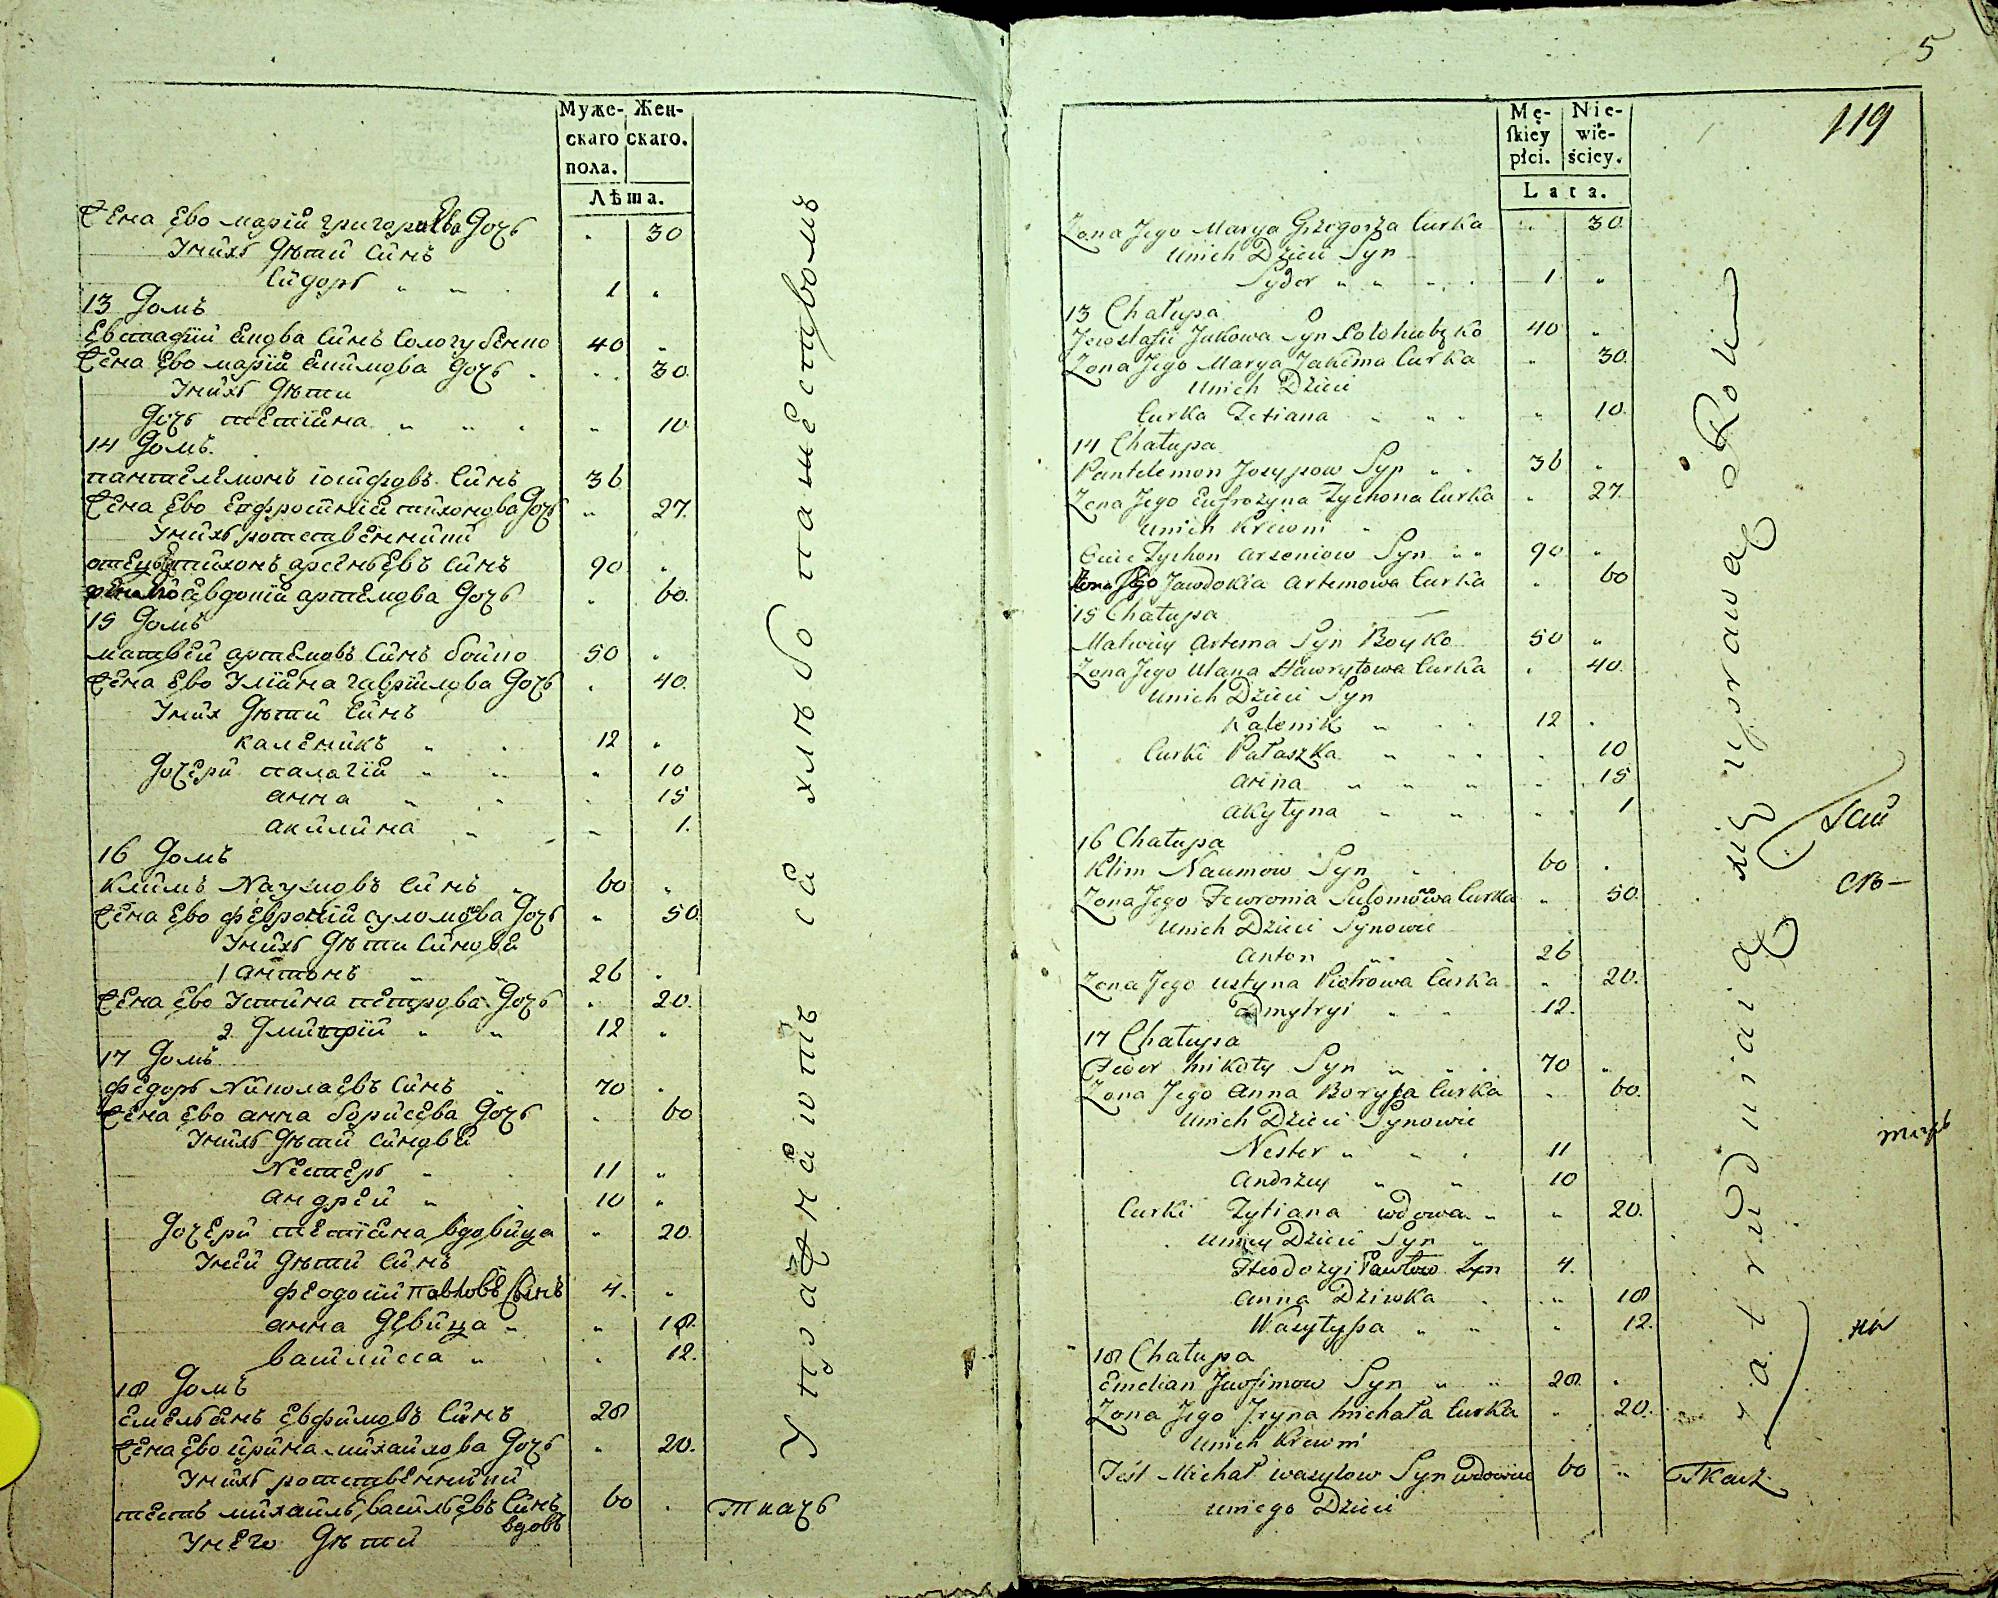 Муже- Жен-
скаго скаго.
пола.
Лѣта.
Жена Ево марїи григорıева Дочь 30
Унихъ Дѣти Синъ
Сидоръ 1
13 Домъ
Евстафїи Яцова Синъ Сологубенко 40
Жена Ево марїи Якимова Дочь 30.
Унихъ Дѣти
Дочь тетїяна 10
14 Домъ.
пантелемонъ іосифовъ Синъ 36
Жена Ево Епфросинїи тихонова Дочь 27.
Унихъ ротственники
отецъ тихонъ арсеньевъ Синъ 90
жена его евдокїи артемова Дочь 60.
15 Домъ
матвѣй артемовъ Синъ бойко 50
Жена Ево Улїяна гаврїилова Дочь 40.
Уних Дѣти Синъ
каленикъ 12
Дочери палагїи 10
анна 15
акилина 1.
16 Домъ
Климъ Наумовъ Синъ 60
Жена Ево февронїи суломова Дочь 50.
Унихъ Дѣти Синови
1 антонъ 26
Жена Ево Устина петрова Дочь 20.
2 Дмитрїй 12
17 Домъ
федоръ Николаевъ Синъ 70
Жена Ево анна борисева Дочь 60
Унихъ Дѣти Синови
Нестеръ 11
андрей 10
Дочери тетїяна вдовица 20.
Унїи Дѣти Синъ
феодосїй павловъ Сынъ 4.
анна Девица 18.
василисса 12.
18 Домъ
Емельянъ Евфимовъ Синъ 28
Жена Ево ирина михаилова Дочь 20.
Унихъ ротственники
тесть михаилъ васильевъ Синъ 60 ткачъ
вдовъ
Унего Дѣти
Упражняютъ ся хлѣбо пашествомъ
5
119
Mę- Nie-
skiey wie-
płci. ściey.
Lata.
Zona Jego Marya Grzegorza Curka 30.
Unich Dzieci Syn
Sydor 1
13 Chałupa
Jewstafii Jakowa Syn Solohubęko 40
Zona Jego Marya Jakima Curka 30.
Unich Dzieci
Curka Tetiana 10.
14 Chałupa
Pantelemon Josypow Syn 36
Zona Jego Eufrozyna Tychona Curka 27.
Unich Krewni
Ociec Tychon Arseniow Syn 90
Zona Jego Jawdokia Artemowa Curka 60
15 Chałupa
Matwiey Artema Syn Boyko 50
Zona Jego Ulana Hawryłowa Curka 40.
Unich Dzieci Syn
Kalenik 12
Curki Pałaszka 10
Anna 15
Akyłyna 1
16 Chałupa
Klim Naumow Syn 60
Zona Jego Fewronia Sulomowa Curka 50.
Unich Dzieci Synowie
Anton 26
Zona Jego Ustyna Piotrowa Curka 20.
Dmytryi 12.
17 Chałupa
Fedor Mikoły Syn 70
Zona Jego Anna Borysa Curka 60.
Unich Dzieci Synowie
Nester 11
Andrzey 10
Curki Tytiana wdowa 20.
Uniey Dzieci Syn
Theodozyi Pawłow Syn 4.
Anna Dziwka 18
Wasylyssa 12.
18 Chałupa
Emelian Jwfimow Syn 28.
Zona Jego Jryna Michała Curka 20.
Unich Krewni
Teść Michał Wasylow Syn wdowiec 60 Tkacz
Uniego Dzieci
Zatrudniaią się uprawą Roli